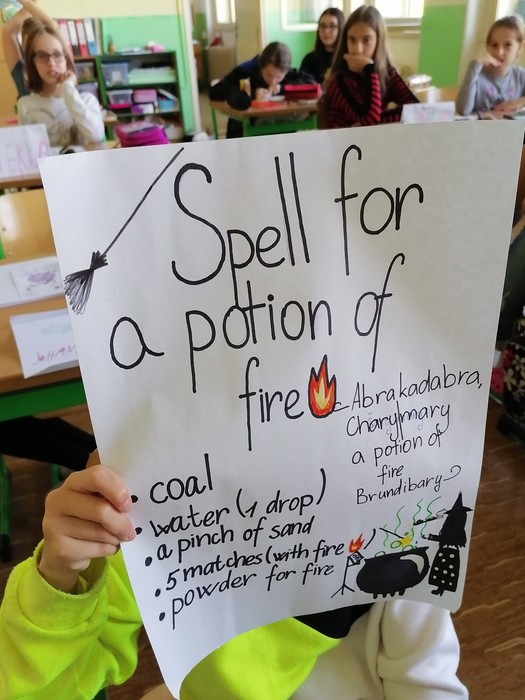 Spell for
a potion of
fire
Abrakadabra,
Charymary
a potion of
fire
Brundibary
• coal
• water (1 drop)
• a pinch of sand
• 5 matches (with fire
• powder for fire
JOHAN